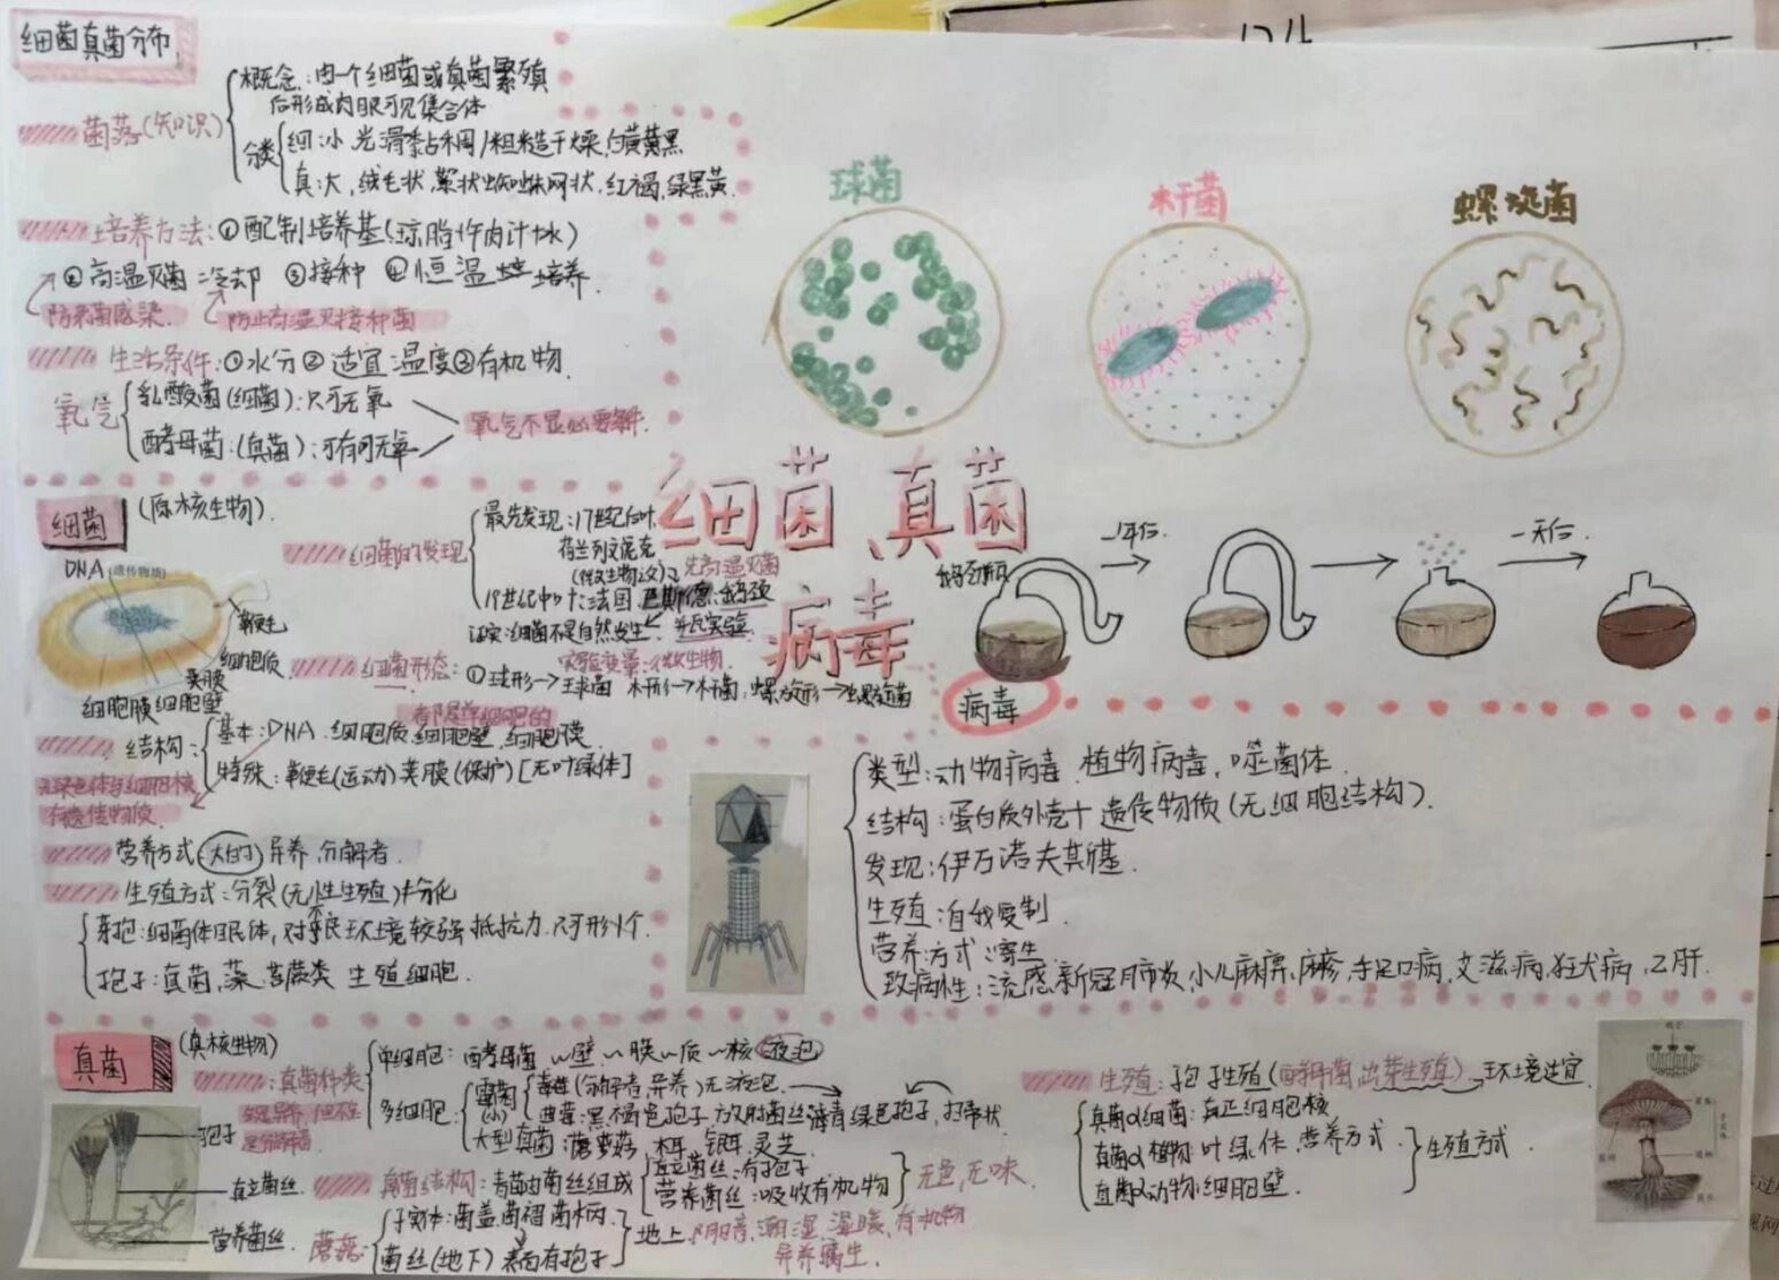 细菌真菌分布
菌落(知识)
概念：由一个细菌或真菌繁殖
后形成肉眼可见集合体
分类
细：小光滑黏稠/粗糙干燥，白黄黑
真：大，绒毛状，絮状蜘蛛网状，红褐，绿黑黄.
培养方法：①配制培养基(琼脂+牛肉汁+水)
②高温灭菌 冷却 ③接种 ④恒温 培养.
防杂菌感染.
防止高温灭接种菌
生活条件：①水分②适宜温度③有机物.
氧气
乳酸菌(细菌)：只可无氧
酵母菌：(真菌)：可有可无氧
氧气不是必要条件.
球菌
杆菌
螺旋菌
细菌、真菌
病毒
细菌
(原核生物).
DNA (遗传物质)
鞭毛
细胞质
荚膜
细胞膜 细胞壁
细菌的发现
最先发现：17世纪后叶,
荷兰列文虎克
先高温灭菌
19世纪中叶：法国.巴斯德：鹅颈
证实：细菌不是自然发生. 瓶实验.
实验变量：微生物.
细菌形态：①球形→球菌 杆形→杆菌，螺旋形→螺旋菌
都是单细胞的
结构：
基本：DNA.细胞质.细胞壁.细胞膜.
特殊：鞭毛(运动)荚膜(保护)[无叶绿体]
有遗传物质.
营养方式(大的)异养.分解者.
生殖方式：分裂(无性生殖)+分化
芽孢：细菌休眠体，对不良环境较强抵抗力.只可形1个.
孢子：真菌,藻.苔藓类 生殖细胞.
鹅颈瓶
一年后.
一天后.
病毒
类型：动物病毒.植物病毒，噬菌体.
结构：蛋白质外壳+遗传物质(无细胞结构).
发现：伊万诺夫斯基.
生殖：自我复制.
营养方式：寄生.
致病性：流感,新冠肺炎,小儿麻痹,麻疹,手足口病,艾滋病,狂犬病,乙肝.
真菌
(真核生物)
孢子
直立菌丝.
营养菌丝.
：真菌种类
单细胞：酵母菌 ~壁~膜~质~核(液泡)
多细胞：
霉菌
(小)
青霉(分解者,异养)无液泡.
曲霉：黑褐色孢子,放射菌丝 青绿色孢子,扫帚状
大型真菌：蘑菇 木耳.银耳.灵芝.
真菌结构：青霉由菌丝组成
直立菌丝：有孢子
营养菌丝：吸收有机物
无色,无味.
蘑菇：
子实体：菌盖,菌褶 菌柄.
菌丝(地下) 表面有孢子
地上.阴暗,潮湿.温暖.有机物
异养腐生.
生殖：孢子生殖(酵母菌出芽生殖)→环境适宜.
真菌&细菌：真正细胞核
真菌&植物：叶绿体.营养方式.
真菌&动物：细胞壁.
生殖方式.